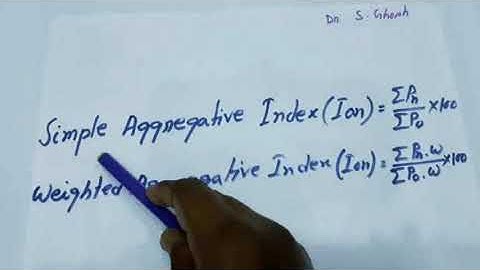 Dr. S. Ghosh
Simple Aggregative Index (Ion) = ΣPn/ΣP0 × 100
Weighted Aggregative Index (Ion) = ΣPn.w/ΣP0.w × 100